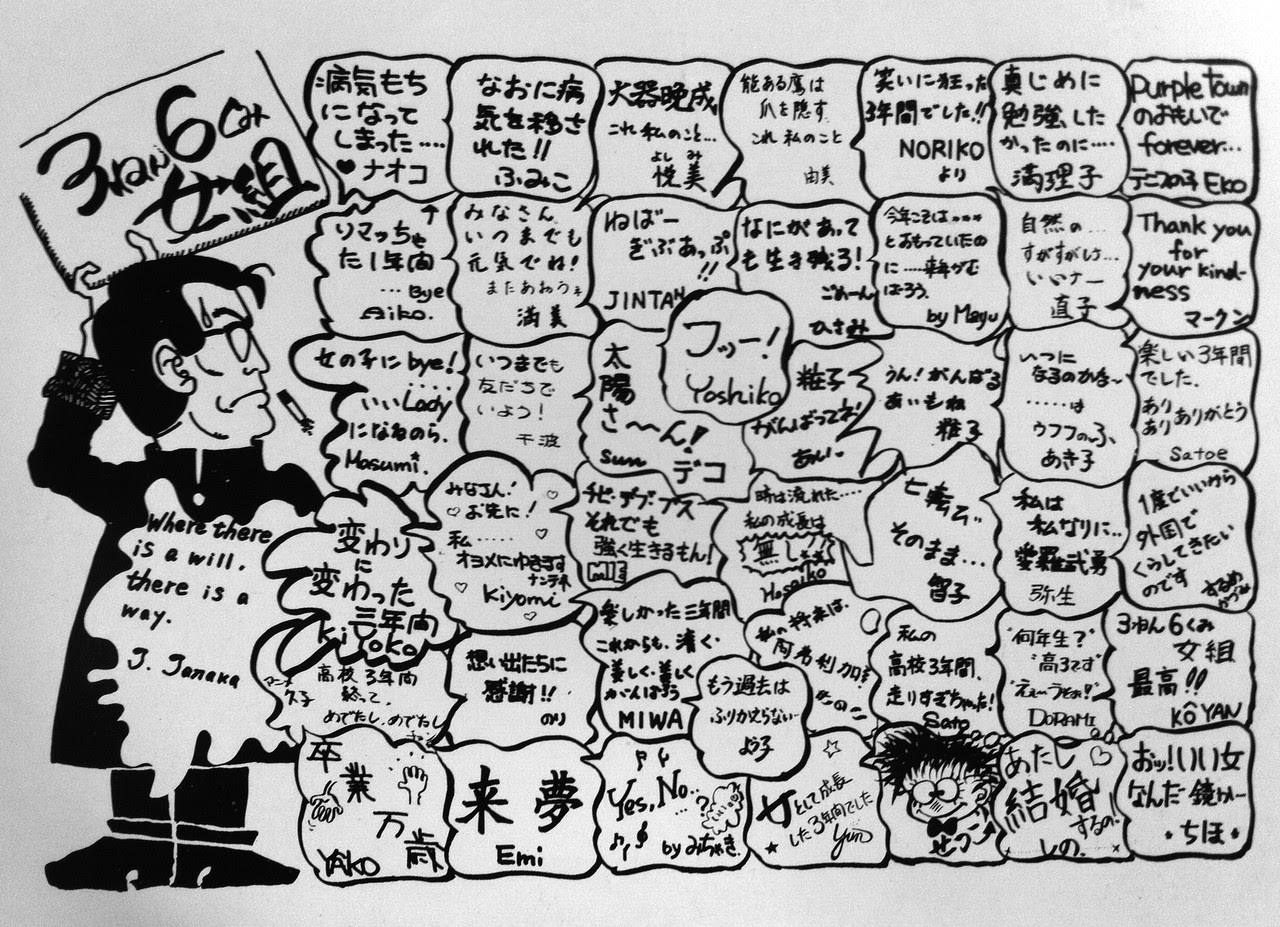 3ねん6くみ
女組
病気もち
になって
しまった……
♥ナオコ
なおに病
気を移さ
れた!!
ふみこ
大器晩成
これ私のこと…
よしみ
悦美
能ある鷹は
爪を隠す
これ 私のこと
由美
笑いに狂った
3年間でした!!
NORIKO
より
真じめに
勉強した
かったのに……
満理子
Purple Town
のおもいで
forever…
テニスの子 Eko
リマッちゃ
た1年間
…Bye
Aiko.
みなさん、
いつまでも
元気でね!
またあおうネ
満美
ねばー
ぎぶあっぷ
!!
JINTAN
なにがあって
も生き残る!
ごめーん
ひさみ
今年こそは……
とおもっていたの
に……来年がむ
ばろう。
by Mayu
自然の…
すがすがしさ…
いいナー
直子
Thank you
for
your kind-
ness
マークン
女の子にbye!
……
いいLady
になるのら.
Masumi.
いつまでも
友だちで
いよう!
千波
太
陽
さ〜ん!
sun デコ
フッー!
Yoshiko
粧子
がんばってネ!
あい…
うん!がんばる
あいもね
粧子
いつに
なるのかな〜
……は
ウフフのふ
あき子
楽しい3年間
でした.
あり
あり ありがとう
Satoe
Where there
is a will.
there is a
way.
J. Tanaka
変わり
に
変わった
三年間
Kiyoko
みなさん!
お先に!
私……
オヨメにゆきます
ナンテネ
Kiyomi
チビ・デブ・ブス
それでも
強く生きるもん!
時は流れた……
私の成長は
無し
七転び
そのまま…
智子
私は
私なりに…
愛羅武勇
弥生
1度でいいから
外国で
くらしてきたい
のです
高校3年間
終って,
めでたし、めでたし
久子
想い出たちに
感謝!!
のり
楽しかった三年間
これからも、清く・
美しく・美しく
がんばろう
MIWA
もう過去は
ふりかえらない…
よう子
私の将来は、
阿弗利加!
きのこ
私の
高校3年間、
走りすぎちゃった!
Sato
"何年生?"
"高3です"
"えぇーうそォ!"
DORAMI
3ねん6くみ
女組
最高!!
KÔYAN
卒
業
万
歳
YAKO
来夢
Emi
Yes, No…
…?
by みちゃき.
女として成長
した3年間でした
Yun
あたし
結婚
するの!
しの.
おッ!いい女
なんだ鏡かー
・ちほ・